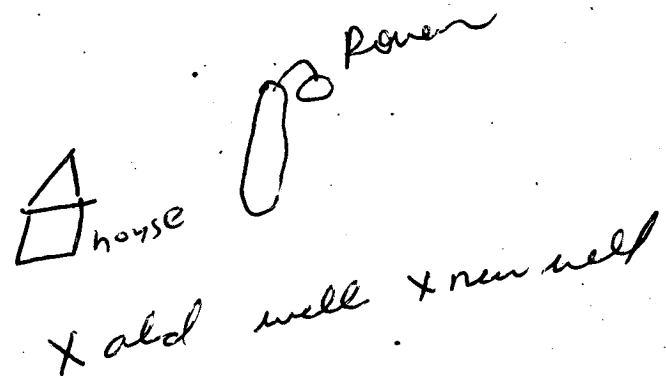 Power
house
X old well X new well